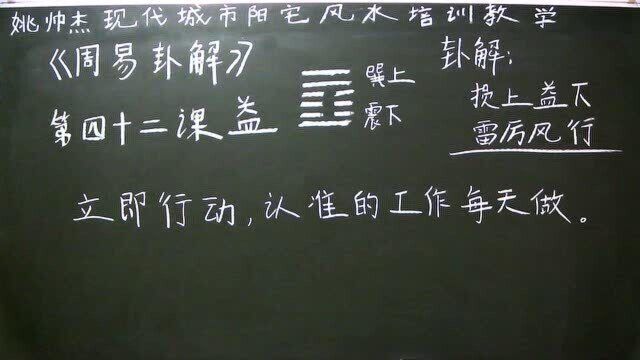 姚帅杰现代城市阳宅风水培训教学
《周易卦解》
第四十二课 益
巽上
震下
卦解:
损上益下
雷厉风行
立即行动,认准的工作每天做。